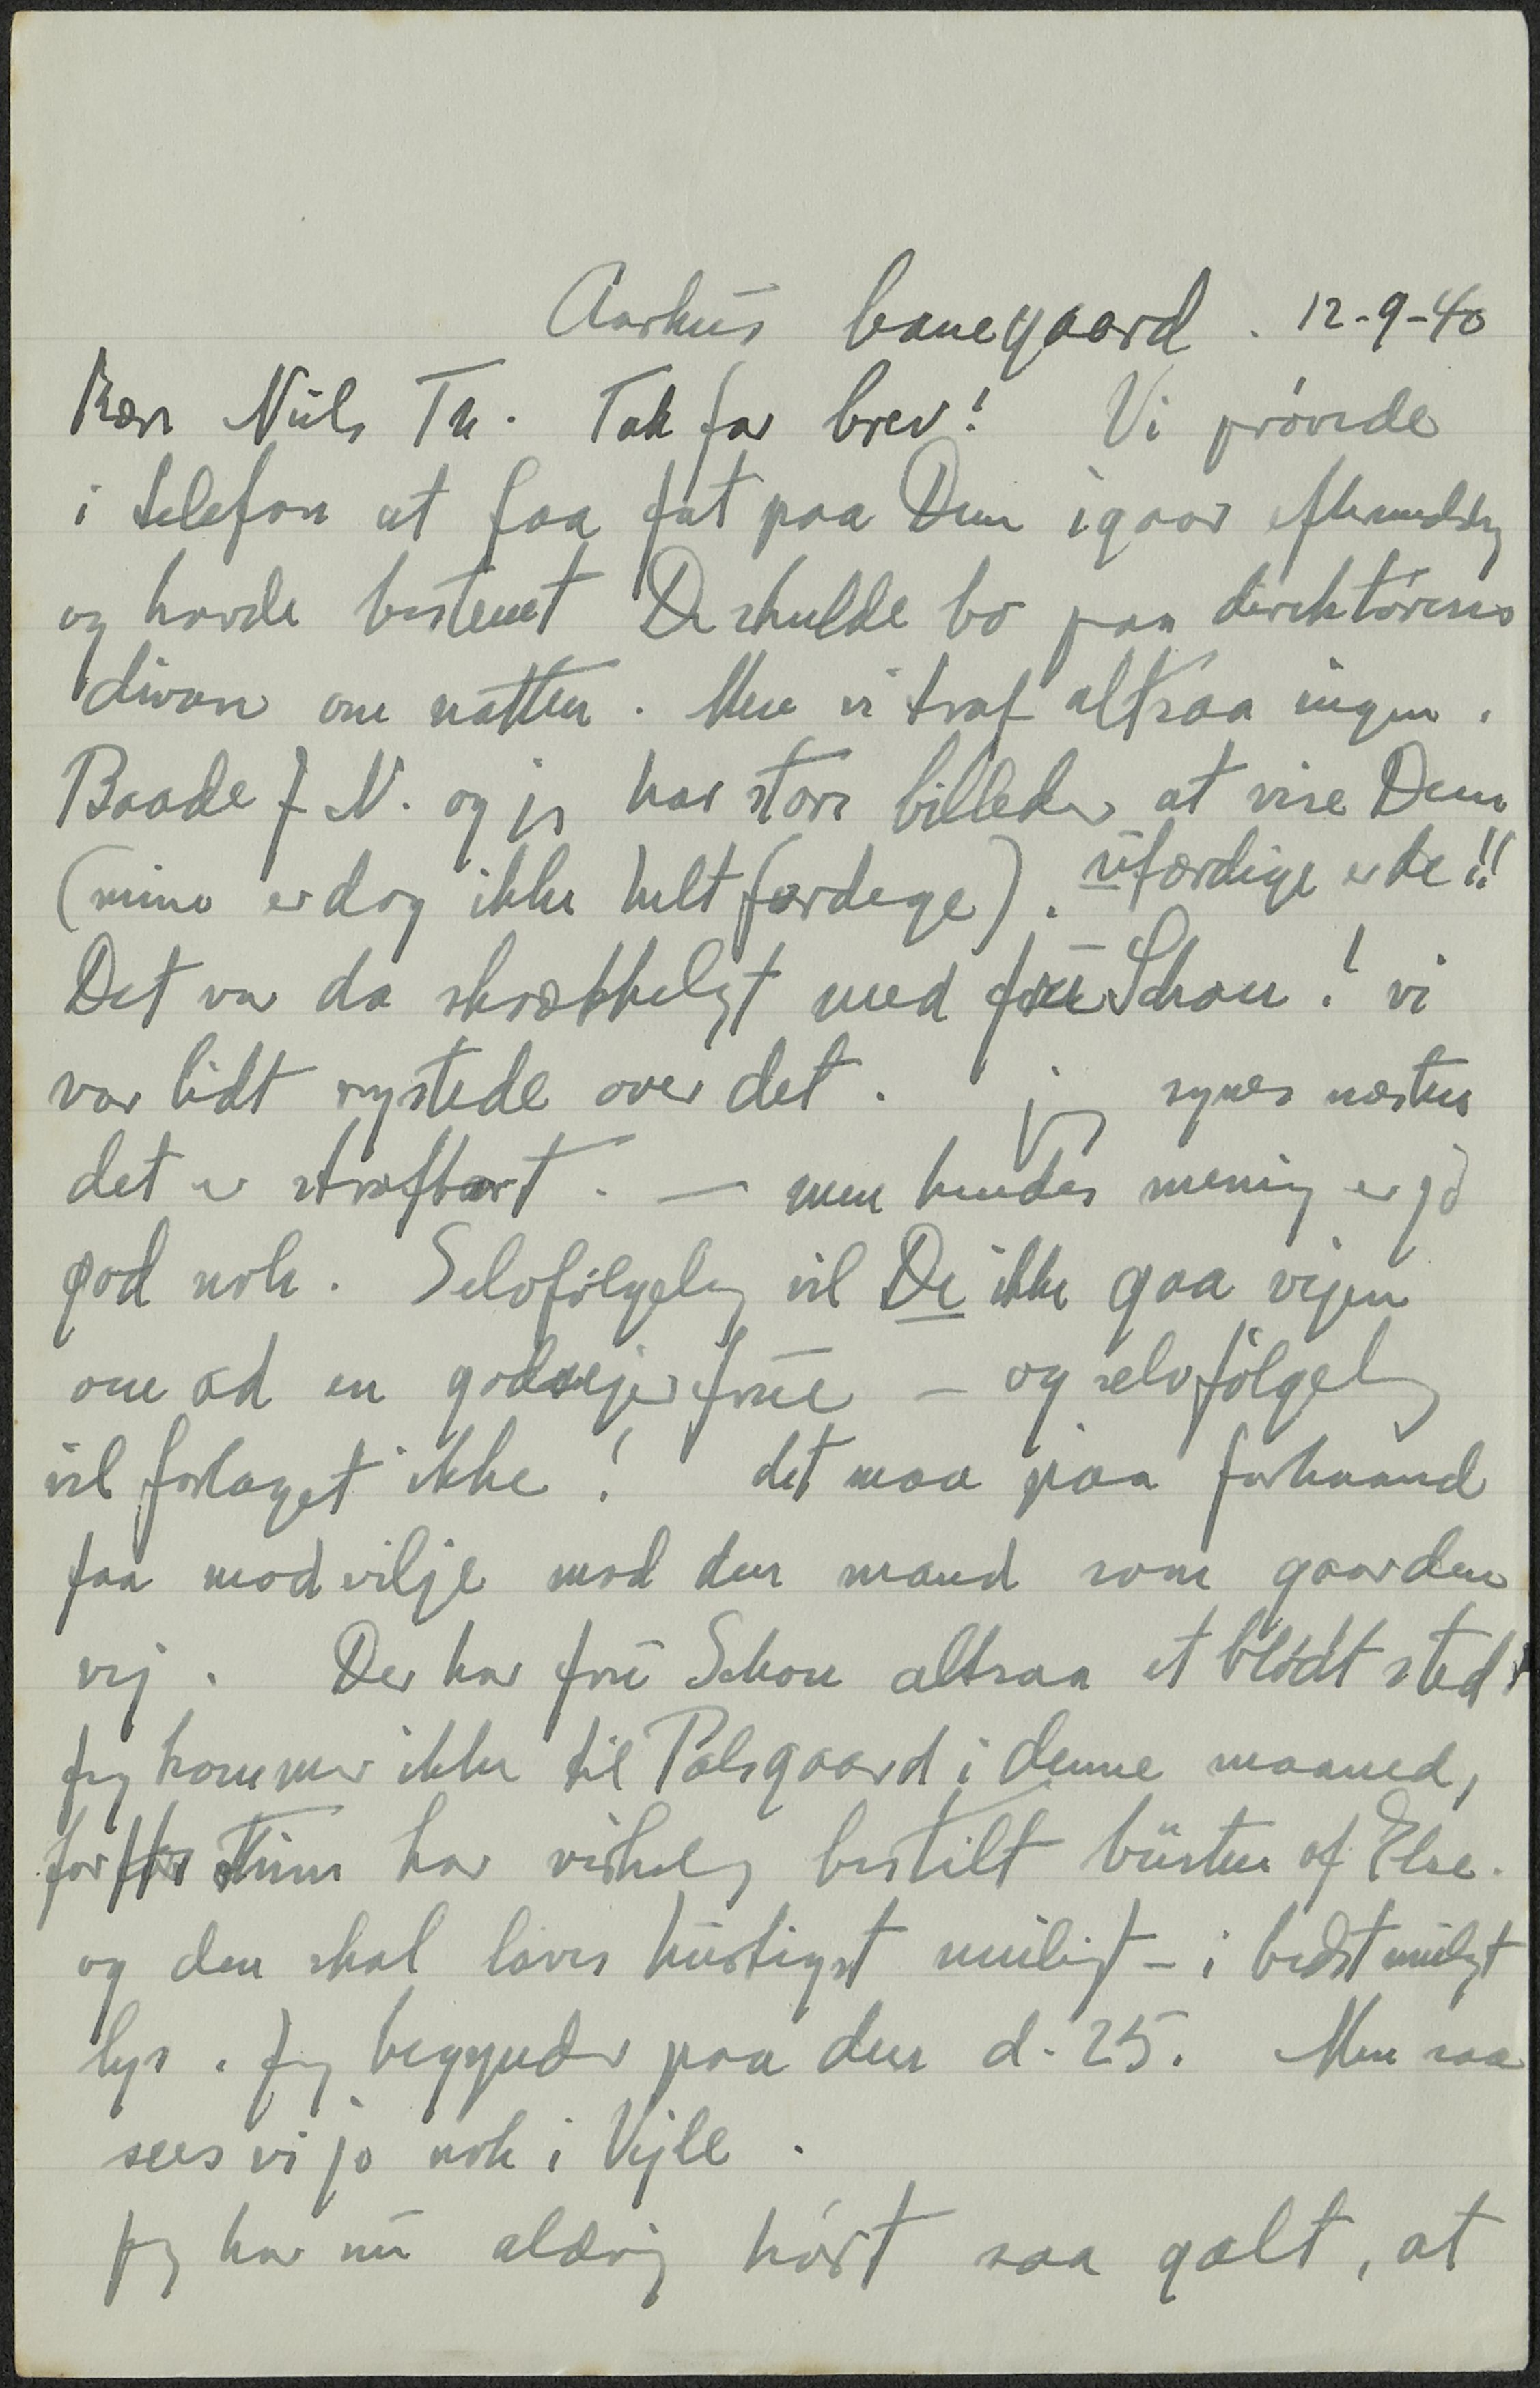 Aarhus banegaard. 12-9-40
Kære Niels Th. Tak for brev! Vi prøvede
i telefon at faa fat paa Dem igaar eftermiddag
og havde bestemt De skulde bo paa direktørens
divan om natten. Men vi traf altsaa ingen.
Baade J. N. og jeg har store billeder at vise Dem
(mine er dog ikke helt færdige). ufærdige er de!!
Det var da skrækkeligt med fru Schou! vi
var lidt rystede over det. jeg synes næsten
det er strafbart. — men hendes mening er jo
god nok. Selvfølgelig vil De ikke gaa vejen
om ad en godsejerfrue — og selvfølgelig
vil forlaget ikke! det maa paa forhaand
faa modvilje mod den mand som gaar den
vej. Der har fru Schou altsaa et blødt sted
Jeg kommer ikke til Palsgaard i denne maaned,
for har virkelig bestilt büsten af Else.
og den skal laves hurtigst muligt – i bedst muligt
lys. Jeg begynder paa den d. 25. Men saa
sees vi jo nok i Vejle.
Jeg har nu aldrig hørt saa galt, at